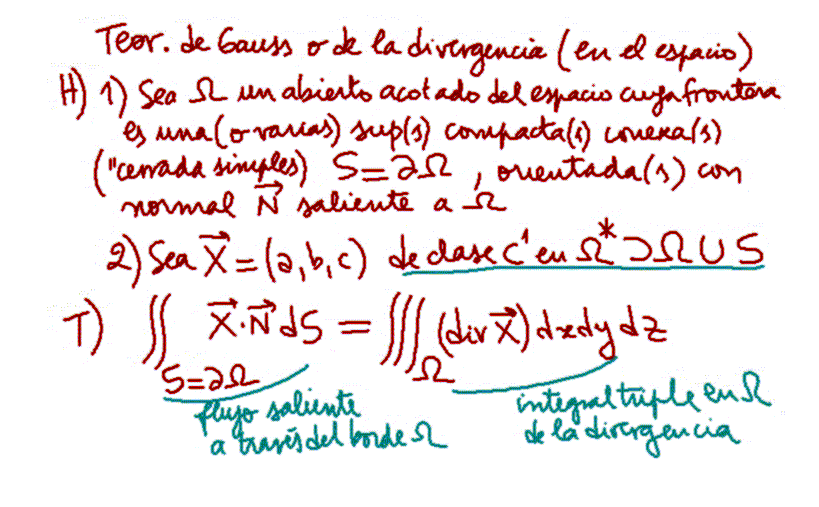 Teor. de Gauss o de la divergencia (en el espacio)
H) 1) Sea Ω un abierto acotado del espacio cuya frontera
es una (o varias) sup(s) compacta(s) conexa(s)
("cerrada simples) S=∂Ω , orientada(s) con
normal N⃗ saliente a Ω
2) Sea X⃗ = (a,b,c) de clase C¹ en Ω* ⊃ Ω ∪ S
T) ∬ X⃗·N⃗ dS = ∭ (div X⃗) dx dy dz
S=∂Ω Ω
flujo saliente
a través del borde Ω
integral triple en Ω
de la divergencia